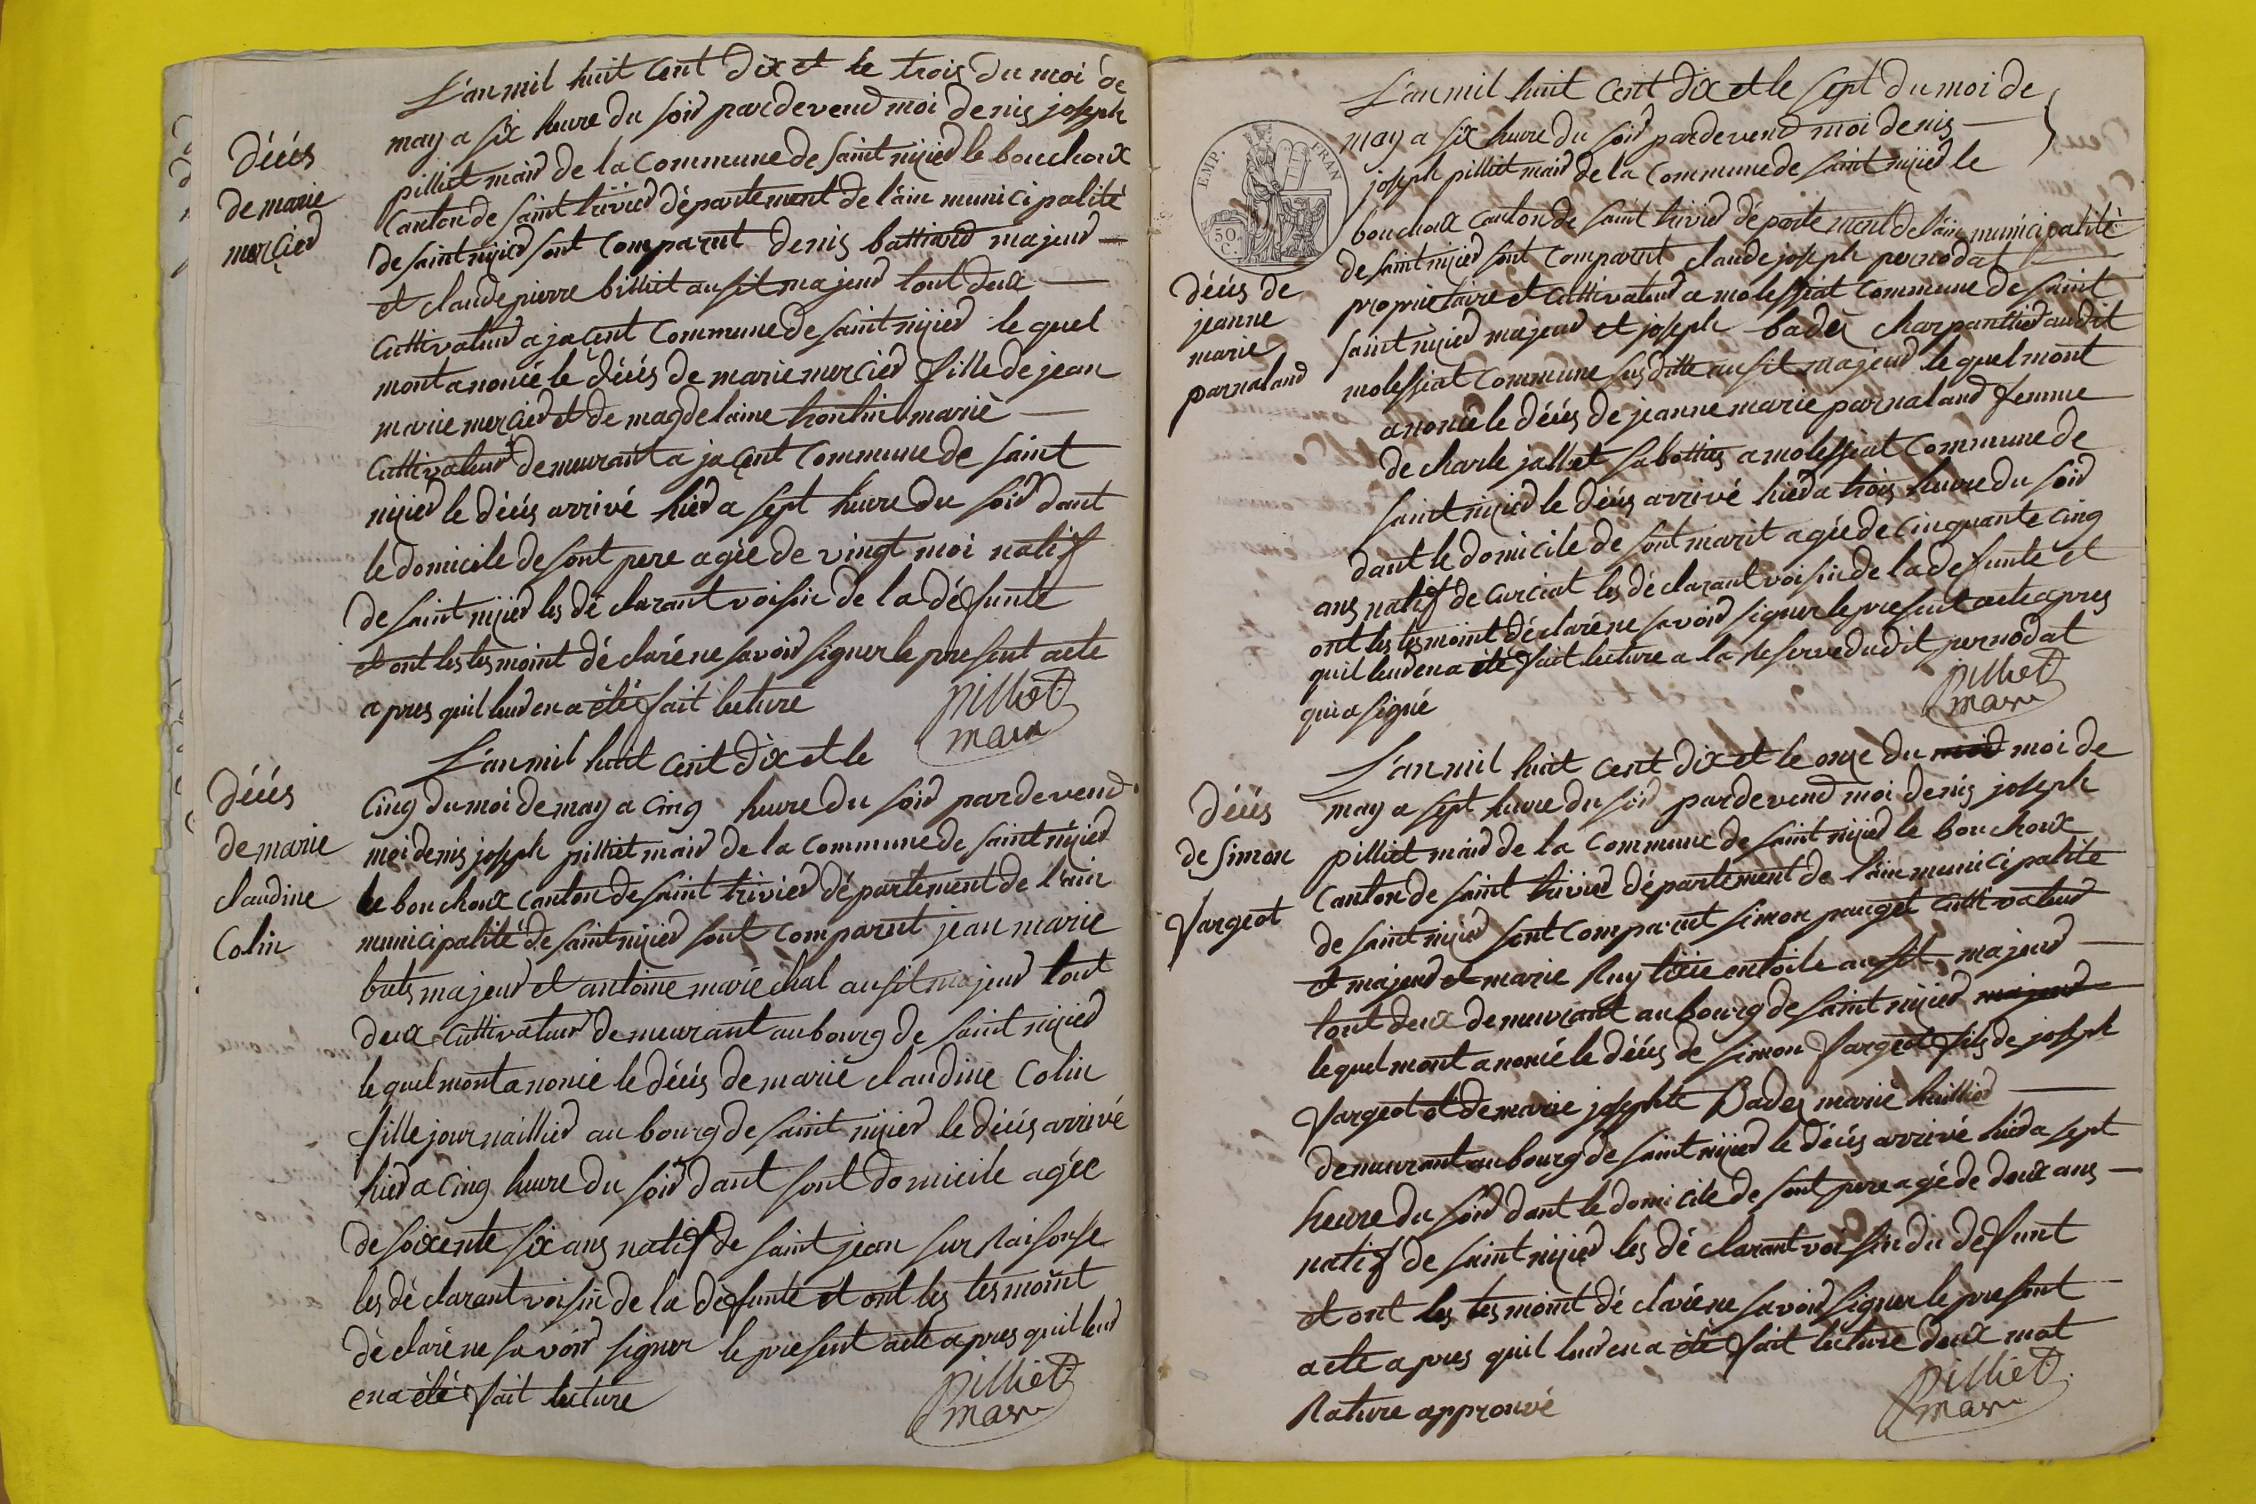 L'an mil huit cent dix et le trois du moi de
may a six heure du soir pardevend moi denis joseph
pilliet maid de la commune de saint nizied le bouchoux
Canton de saint trivied département de l'ain municipalité
de saint nizied sont comparut denis battiand majeud
et claude pierre billiet ausit majeud tout deux
Cuttivateud a jacent commune de saint nizied le quel
mont anoncé le décés de marie mercied fille de jean
marie mercied et de magdelaine marié
Cuttivateud demeurant a jacent commune de saint
nizied le décés arrivé hied a sept heure du soir dant
le domicile de sont pere agée de vingt moi natif
de saint nizied les déclarant voisin de la défunte
et ont les tesmoint déclaré ne savoir signer le present acte
apres quil leud en a été fait lecture
pilliet
maire
Décés
de marie
mercied
L'an mil huit cent dix et le
Cinq du moi de may a cinq heure du soir pardevend
moi denis joseph pilliet maid de la commune de saint nizied
le bouchoux canton de saint trivied département de l'ain
municipalité de saint nizied sont comparut jean marie
majeud et antoine maréchal ausit majeud tout
deux cuttivateud demeurant au bourg de saint nizied
le quel mont anoncé le décés de marie claudine Colin
fille journaillied au bourg de saint nizied le décés arrivé
hied a cinq heure du soir dant sont domicile agée
de soixente six ans natif de saint jean sur Raisouse
les déclarant voisin de la défunte et ont les tesmoint
déclaré ne savoir signer le present acte apres quil leud
en a été fait lecture
pilliet
maire
Décés
de marie
claudine
Colin
L'an mil huit cent dix et le sept du moi de
may a six heure du soir pardevend moi denis
joseph pilliet maid de la commune de saint nizied le
bouchoux canton de saint trivied département de l'ain municipalité
de saint nizied sont comparut claude joseph pernodat
proprietaire et cuttivateud a molessiat commune de saint
saint nizied majeud et joseph badez charpanthied audit
molessiat commune susditte ausit majeud le quel mont
anoncé le décés de jeanne marie parnaland femme
de charle jallet sabotties a molessiat commune de
saint nizied le décés arrivé hied a trois heure du soir
dant le domicile de sont marit agée de cinquante cinq
ans natif de curciat les déclarant voisin de la defunte et
ont les tesmoint déclaré ne savoir signer le present acte apres
quil leud en a été fait lecture a la reserve dudit pernodat
qui a signé
pilliet
maire
EMP. FRAN
50 C.
Décés de
jeanne
marie
parnaland
L'an mil huit cent dix et le onze du moi de
may a sept heure du soir pardevend moi denis joseph
pilliet maid de la commune de saint nizied le bouchoux
Canton de saint trivied département de l'ain municipalité
de saint nizied sont comparut simon pauget cuttivateud
et majeud et marie ausit majeud
tout deux demeurant au bourg de saint nizied majeud
le quel mont anoncé le décés de simon Vargeot fils de joseph
Vargeot et de marie josephte Badez marié
demeurant au bourg de saint nizied le décés arrivé hied a sept
heure du soir dant le domicile de sont pere agé de deux ans
natif de saint nizied les déclarant voisin du défunt
et ont les tesmoint déclaré ne savoir signer le present
acte apres quil leud en a été fait lecture deux mot
Rature approuvé
pilliet
maire
Décés
de simon
Vargeot